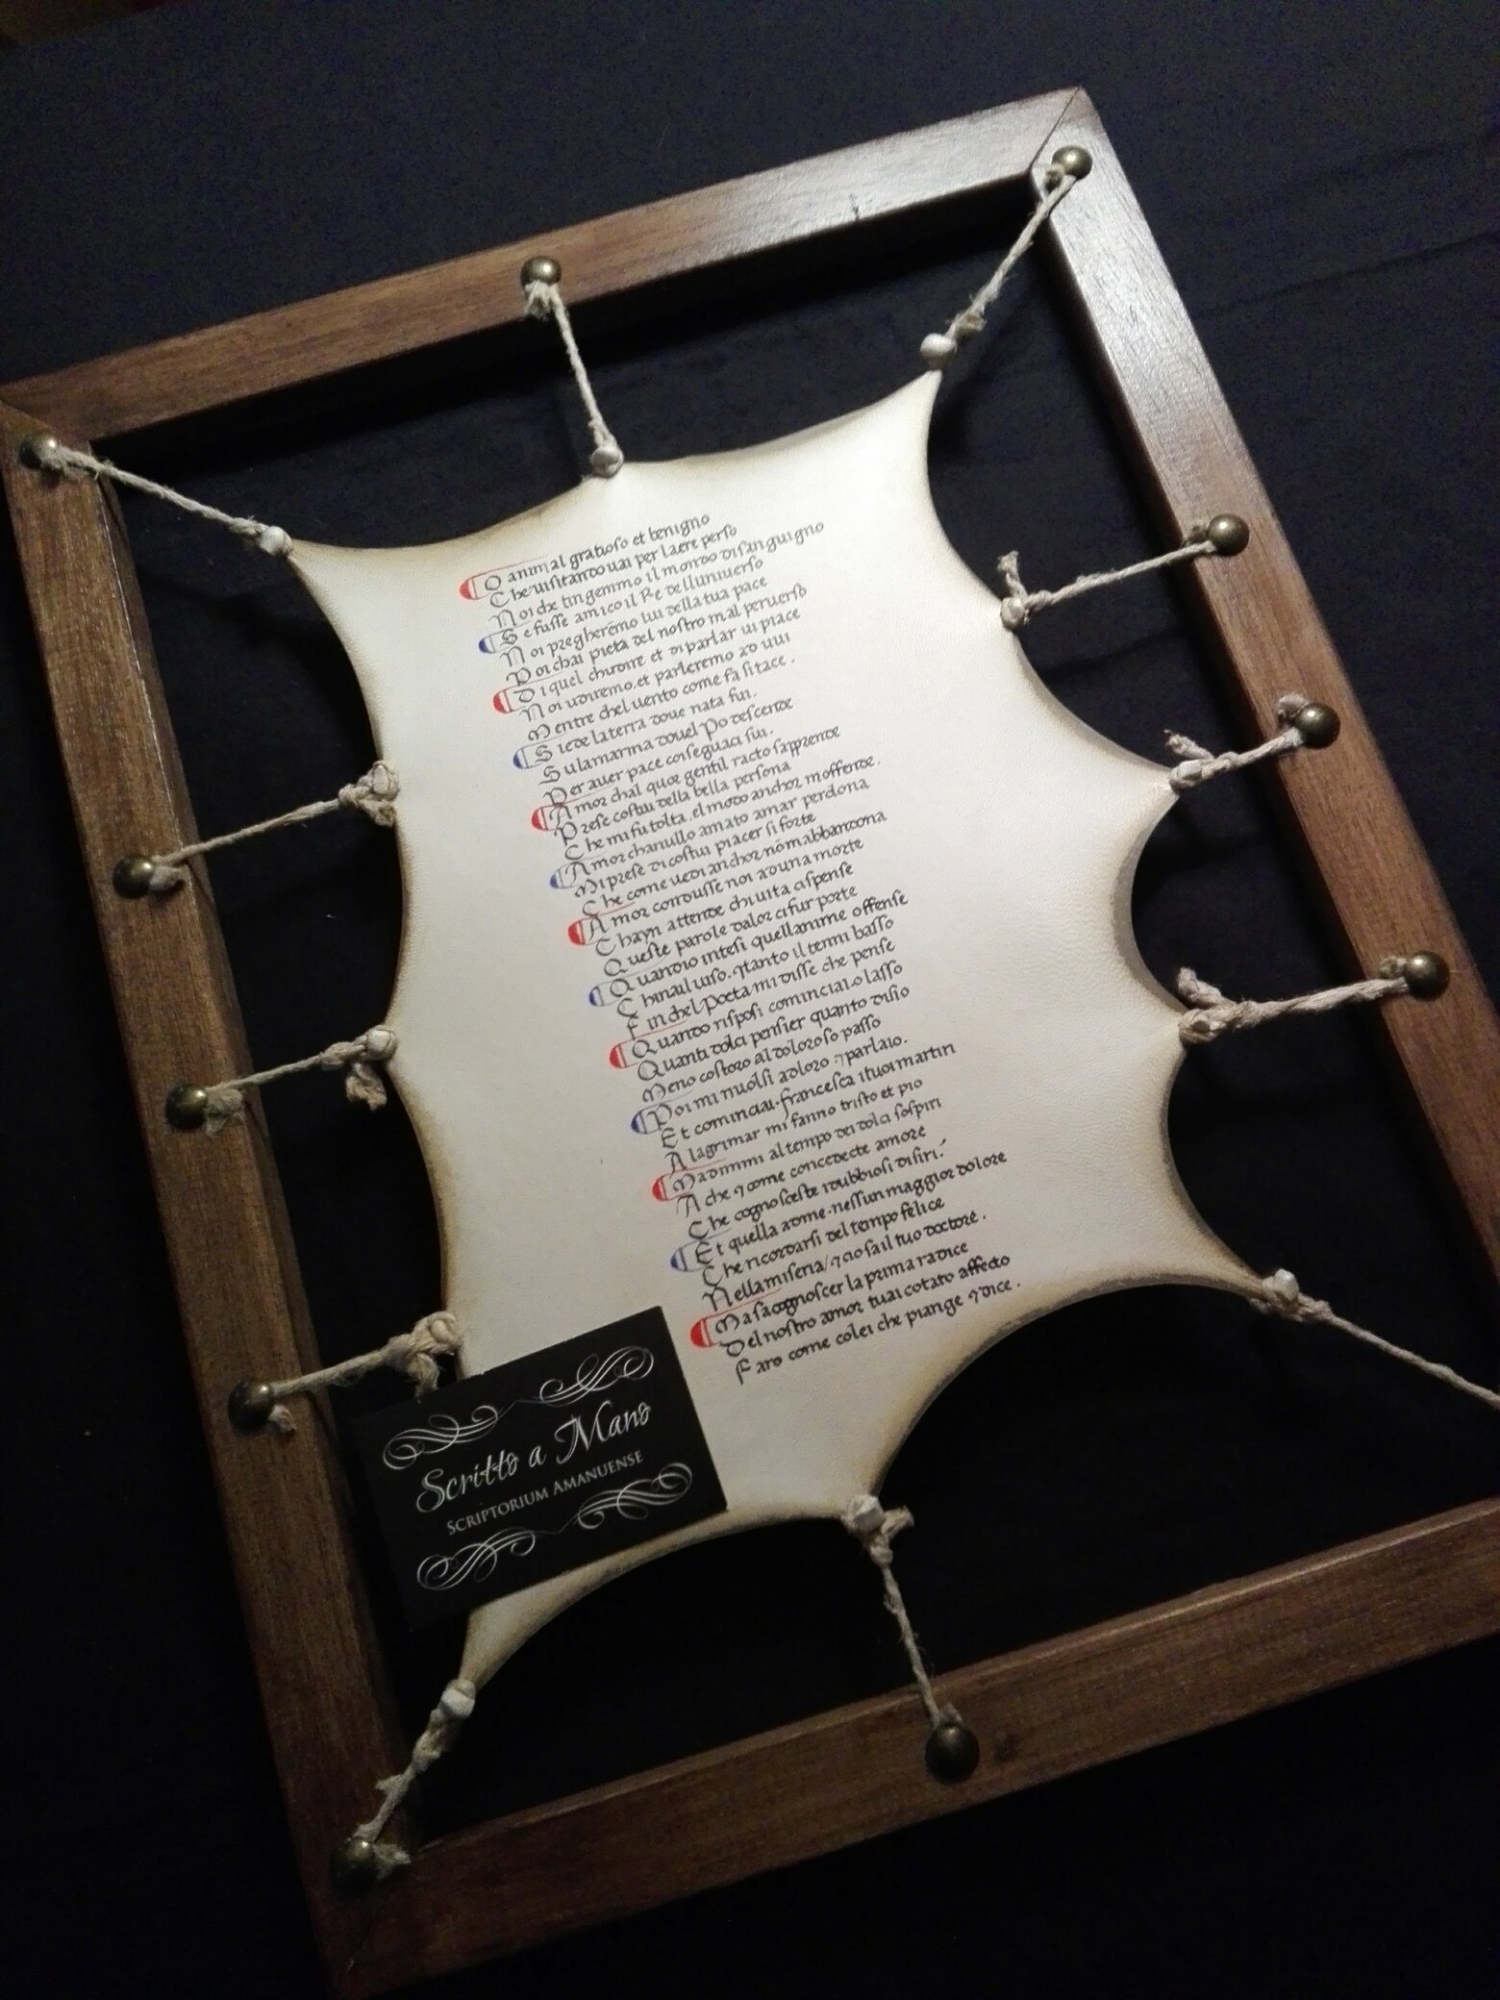 O animal gratioso et benigno
Che uisitando uai per laere perso
Noi che tingemmo il mondo di sanguigno
Se fusse amico il Re delluniuerso
Noi pregheremo lui della tua pace
Poi chai pieta del nostro mal peruerso
Di quel chudire et di parlar ui piace
Noi udiremo. et parleremo ad uui
Mentre chel uento come fa si tace.
Siede la terra doue nata fui.
Su la marina douel Po descende
Per auer pace co iseguaci sui.
Amor chal quor gentil racto sapprende
Prese costui della bella persona
Che mi fu tolta. el modo anchor moffende.
Amor cha nullo amato amar perdona
Mi prese di costui piacer si forte
Che come uedi anchor nō mabbandona
Amor condusse noi ad una morte
Chayn attende chi uita ci spense
Queste parole dalor ci fur porte
Quandio intesi quellanime offense
Chinail uiso. ⁊tanto il tenni basso
Finchel Poeta mi disse che pense
Quando risposi cominciai. o lasso
Quanti dolci pensier quanto disio
Meno costoro al doloroso passo
Poi mi riuolsi ad loro ⁊ parlaio.
Et cominciai. francesca ituoi martiri
A lagrimar mi fanno tristo et pio
Ma dimmi al tempo dei dolci sospiri
A che ⁊ come concedecte amore
Che cognosceste idubbiosi disiri.
Et quella ad me. nessun maggior dolore
Che ricordarsi del tempo felice
Nella miseria/ ⁊ cio sa il tuo doctore.
Ma sa cognoscer la prima radice
Del nostro amor tu ai cotato affecto
Faro come colei che piange ⁊ dice.
Scritto a Mano
SCRIPTORIUM AMANUENSE